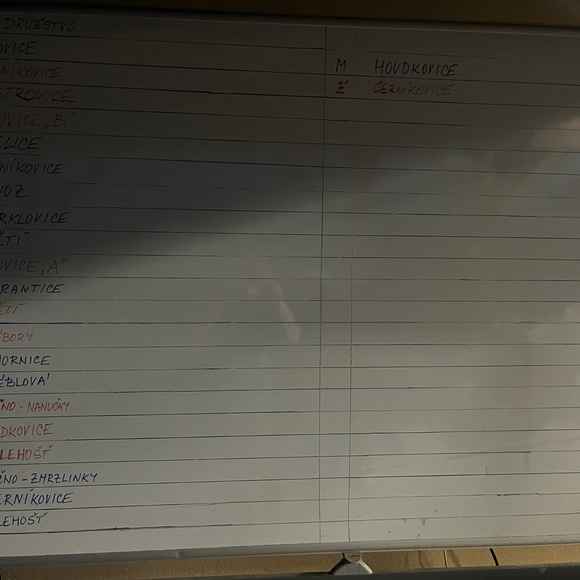 DRUŽSTVO
OVICE
NÍKOVICE
OVICE „B"
LICE
NÍKOVICE
VOZ
RKLOVICE
ŠTÍ
OVICE „A"
RANTICE
ŠTÍ
BORY
HORNICE
ÉBLOVÁ
NO - NANUČKY
DKOVICE
LEHOŠŤ
NO - ZMRZLINKY
ERNÍKOVICE
LEHOŠŤ
M HOUDKOVICE
Ž ČERNÍKOVICE